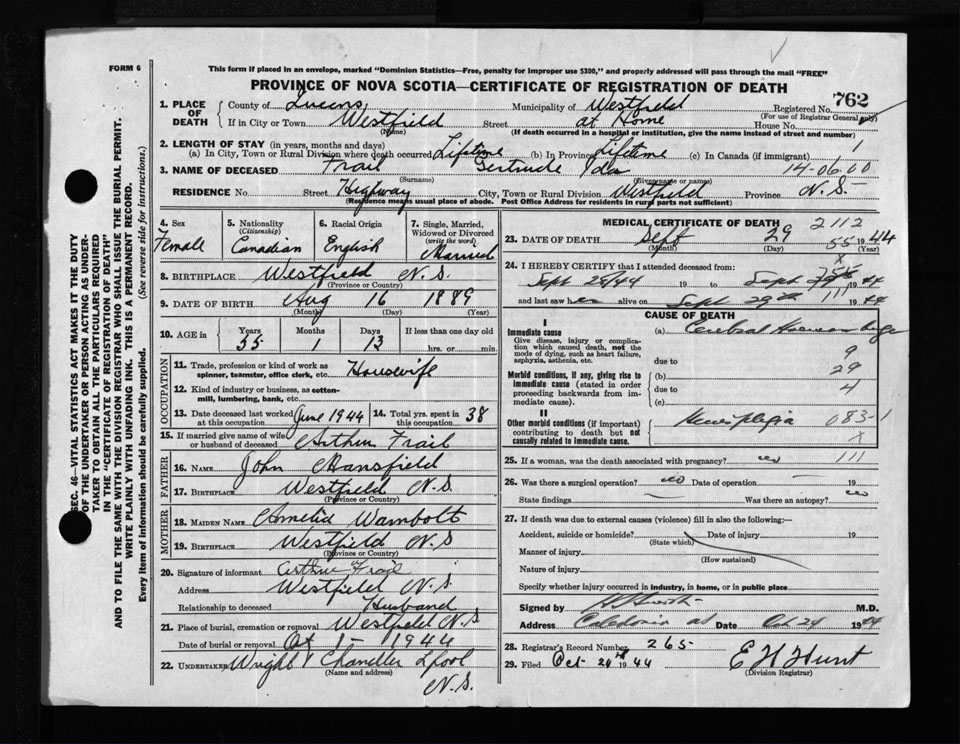 FORM 6
This form if placed in an envelope, marked "Dominion Statistics—Free, penalty for improper use $300," and properly addressed will pass through the mail "FREE"
PROVINCE OF NOVA SCOTIA—CERTIFICATE OF REGISTRATION OF DEATH
SEC. 46—VITAL STATISTICS ACT MAKES IT THE DUTY
OF THE UNDERTAKER OR PERSON ACTING AS UNDER-
TAKER TO OBTAIN ALL THE PARTICULARS REQUIRED
IN THE "CERTIFICATE OF REGISTRATION OF DEATH"
AND TO FILE THE SAME WITH THE DIVISION REGISTRAR WHO SHALL ISSUE THE BURIAL PERMIT.
WRITE PLAINLY WITH UNFADING INK. THIS IS A PERMANENT RECORD.
Every item of information should be carefully supplied. (See reverse side for instructions.)
1. PLACE OF DEATH
County of Queens, Municipality of Westfield Registered No. 762
(For use of Registrar General only)
If in City or Town Westfield Street at Home House No.
(Name) (If death occurred in a hospital or institution, give the name instead of street and number)
2. LENGTH OF STAY (in years, months and days)
(a) In City, Town or Rural Division where death occurred Lifetime (b) In Province Lifetime (c) In Canada (if immigrant) 1
3. NAME OF DECEASED Frail Gertrude Ida 14-06.00
(Surname) (Given name or names)
RESIDENCE No. Street Highway City, Town or Rural Division Westfield Province N.S.
(Residence means usual place of abode. Post Office Address for residents in rural parts not sufficient)
4. Sex Female
5. Nationality (Citizenship) Canadian
6. Racial Origin English
7. Single, Married, Widowed or Divorced (write the word) Married
8. BIRTHPLACE Westfield N.S.
(Province or Country)
9. DATE OF BIRTH Aug 16 1889
(Month) (Day) (Year)
10. AGE in Years 55 Months 1 Days 13 If less than one day old hrs. or min.
OCCUPATION
11. Trade, profession or kind of work as spinner, teamster, office clerk, etc. Housewife
12. Kind of industry or business, as cotton-mill, lumbering, bank, etc.
13. Date deceased last worked at this occupation June 1944 14. Total yrs. spent in this occupation 38
15. If married give name of wife or husband of deceased Arthur Frail
FATHER
16. NAME John Mansfield
17. BIRTHPLACE Westfield N.S.
(Province or Country)
MOTHER
18. MAIDEN NAME Amelia Wambolt
19. BIRTHPLACE Westfield N.S
(Province or Country)
20. Signature of informant Arthur Frail
Address Westfield N.S.
Relationship to deceased Husband
21. Place of burial, cremation or removal Westfield N.S
Date of burial or removal Oct 1- 1944
22. UNDERTAKER Wright Chandler Lpool
(Name and address)
N.S.
MEDICAL CERTIFICATE OF DEATH 2112
23. DATE OF DEATH Sept 29 1944
(Month) (Day) (Year)
55
24. I HEREBY CERTIFY that I attended deceased from:
Sept 25/44 19 to Sept 1944
and last saw her alive on Sept 29th 1944
111
CAUSE OF DEATH
I
Immediate cause
Give disease, injury or complication which caused death, not the mode of dying, such as heart failure, asphyxia, asthenia, etc.
(a) Cerebral Hoemorrhage
due to 9
Morbid conditions, if any, giving rise to immediate cause (stated in order proceeding backwards from immediate cause).
(b) 29
due to 4
(c)
II
Other morbid conditions (if important) contributing to death but not causally related to immediate cause.
Hemiplegia 083-1
x
25. If a woman, was the death associated with pregnancy? no 111
26. Was there a surgical operation? no Date of operation 19
State findings Was there an autopsy? no
27. If death was due to external causes (violence) fill in also the following:—
Accident, suicide or homicide? Date of injury 19
(State which)
Manner of injury
(How sustained)
Nature of injury
Specify whether injury occurred in industry, in home, or in public place
Signed by M.D.
Address Caledonia Date Oct 24 1944
28. Registrar's Record Number 265
29. Filed Oct- 24th 1944 E H Hunt
(Division Registrar)